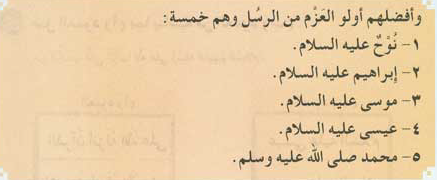 وأفضلهم أولو العَزْم من الرسُل وهم خمسة:
١- نُوْحٌ عليه السلام.
٢- إبراهيم عليه السلام.
٣- موسى عليه السلام.
٤- عيسى عليه السلام.
٥- محمد صلى الله عليه وسلم.